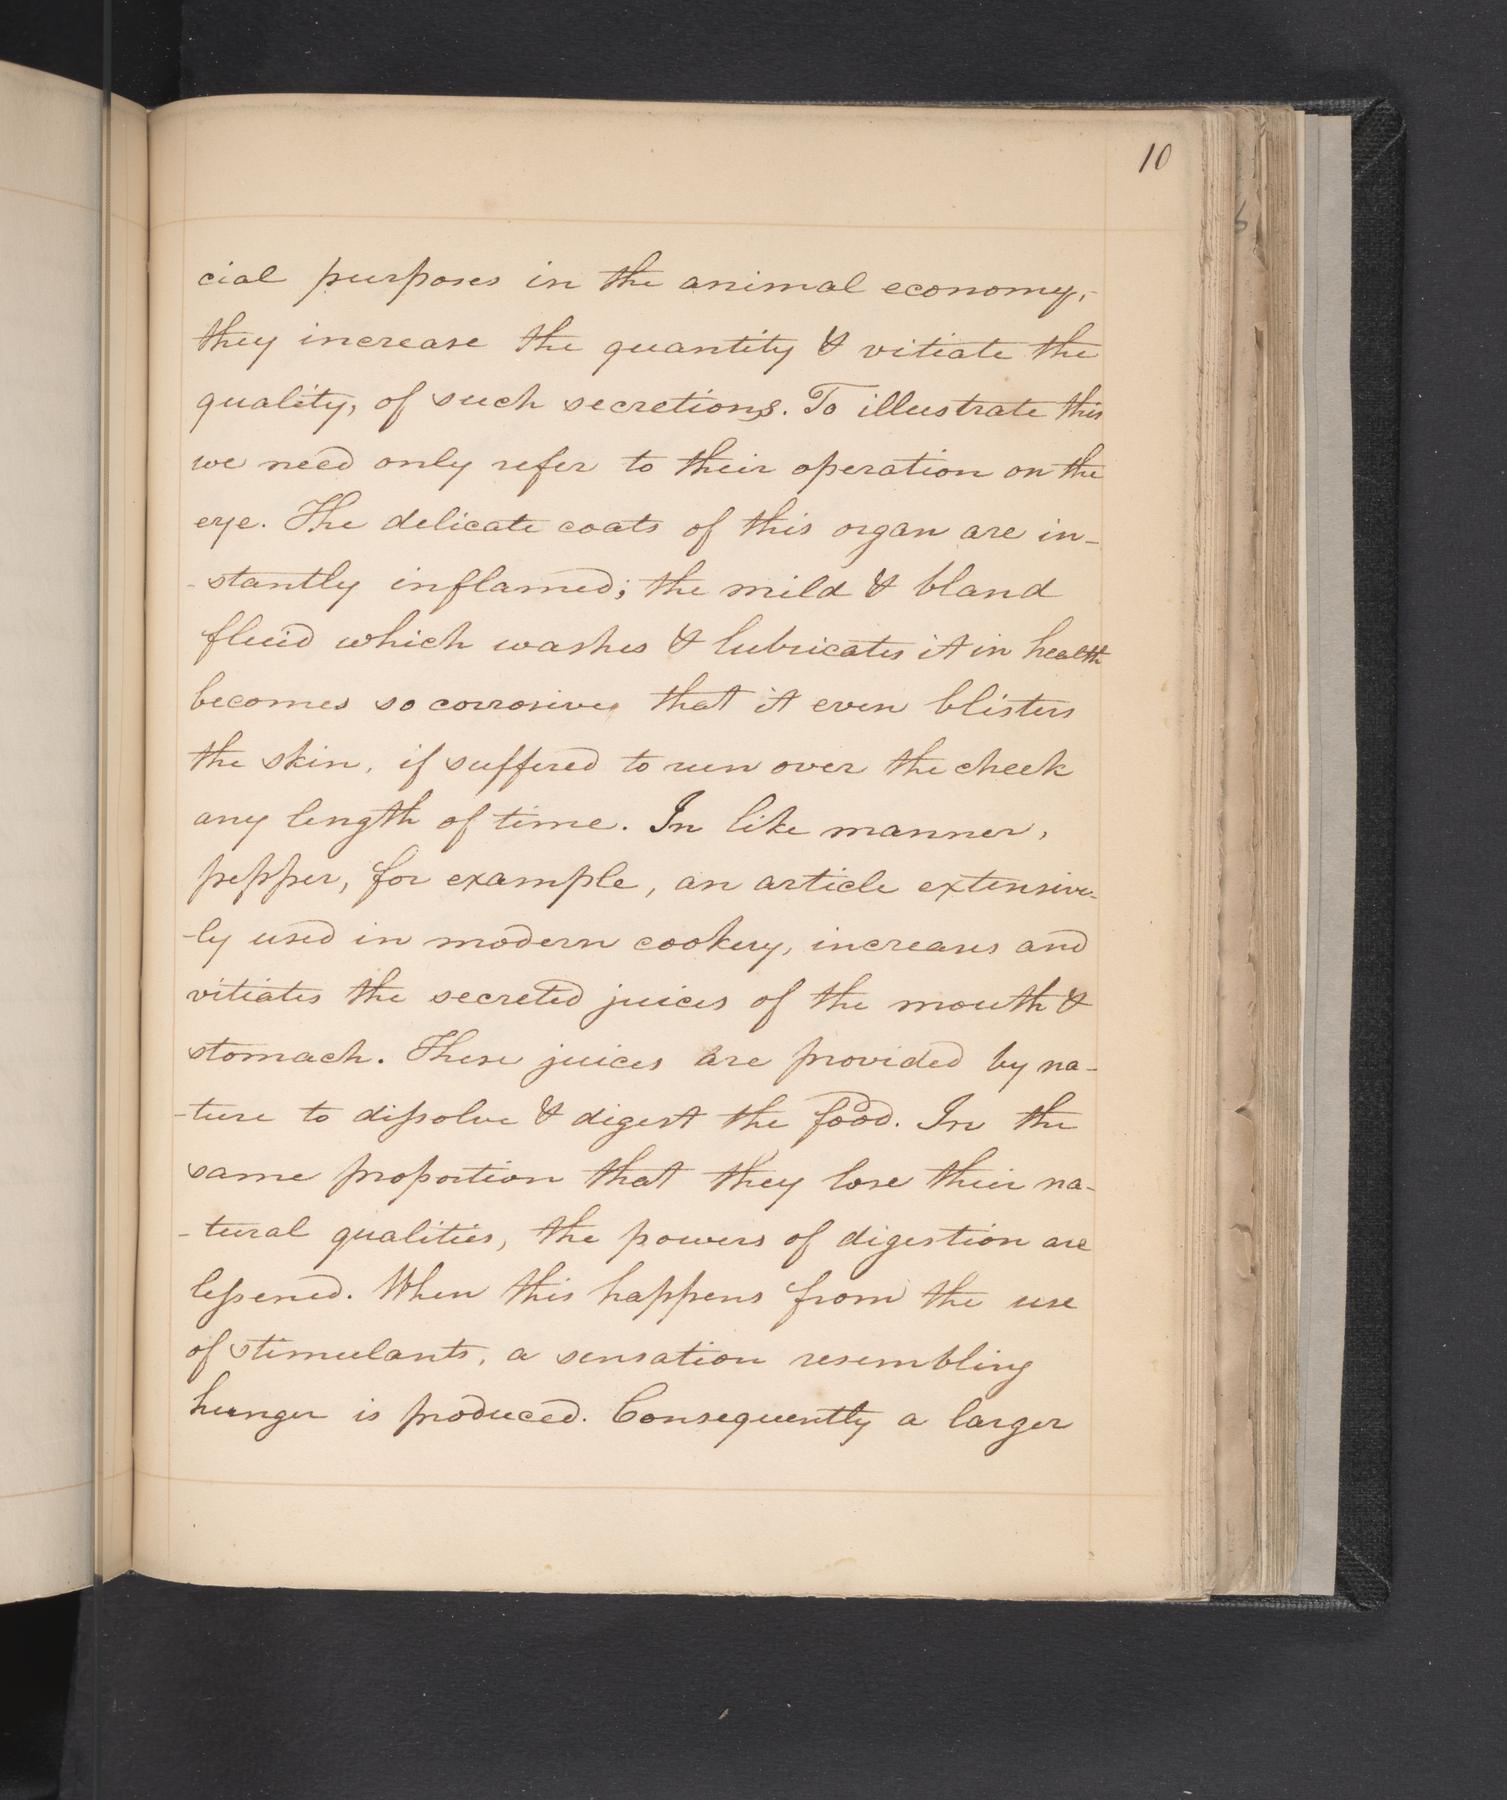 10
cial purposes in the animal economy,
they increase the quantity & vitiate the
quality, of such secretions. To illustrate this
we need only refer to their operation on the
eye. The delicate coats of this organ are in-
-stantly inflamed; the mild & bland
fluid which washes & lubricates it in health
becomes so corrosive, that it even blisters
the skin, if suffered to run over the cheek
any length of time. In like manner,
pepper, for example, an article extensive-
-ly used in modern cookery, increases and
vitiates the secreted juices of the mouth &
stomach. These juices are provided by na-
-ture to dissolve & digest the food. In the
same proportion that they lose their na-
-tural qualities, the powers of digestion are
lessened. When this happens from the use
of stimulants, a sensation resembling
hunger is produced. Consequently a larger